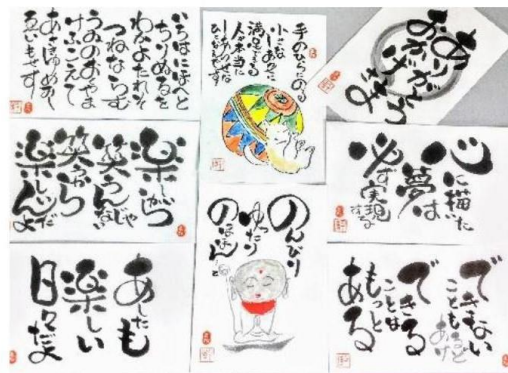 いろはにほへと
ちりぬるを
わかよたれそ
つねならむ
うゐのおくやま
けふこえて
あさきゆめみし
ゑひもせす
手のひらにのる
小さな
しあわせに
満足できる
人が本当に
ありがとう
おかげさま
楽しいから
笑うんじゃない
笑うから
楽しいんだ
心に描いた
夢は
必ず実現する
のんびり
ゆったり
のほほんと
あしたも
楽しい
日々だよ
できない
ことも
あるけど
できる
ことは
もっと
ある